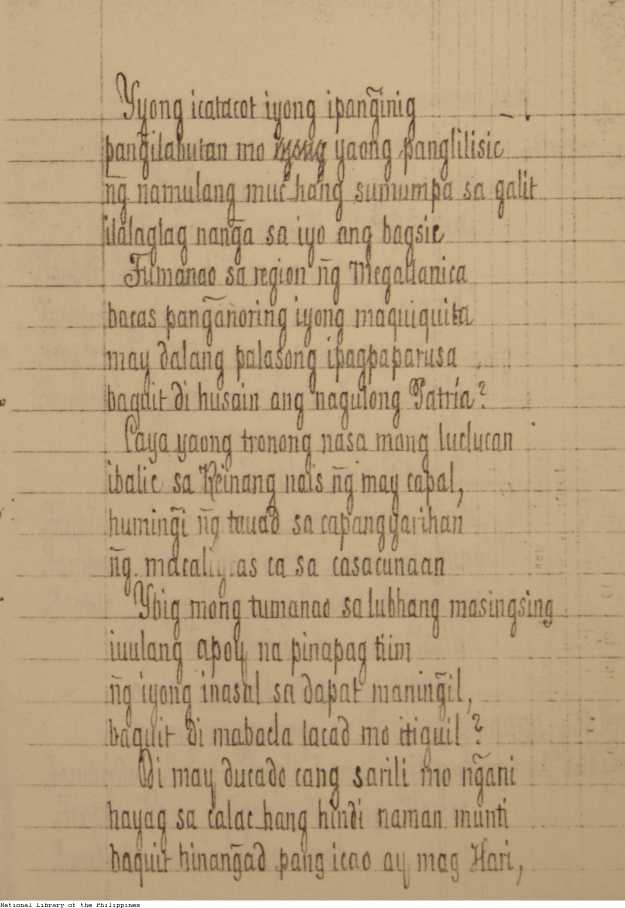 Yyong icatacot iyong ipang̃inig
pang̃ilabutan mo iyong yaong panglilisic
ñg namulang muc-hang sumumpa sa galit
ilalaglag nang̃a sa iyo ang bagsic
Tumanao sa region ñg Megallanica
bacas pang̃añoring iyong maquiquita
may dalang palasong ipagpaparusa
baquit di husain ang nagulong Patria?
Caya yaong tronong nasa mong luclucan
ibalic sa Reinang nais ñg may capal,
huming̃i ñg tauad sa capangyarihan
ñg macaligtas ca sa casacunaan
Ybig mong tumanao sa lubhang masingsing
iuulang apoy na pinapag tiim
ñg iyong inasal sa dapat maning̃il,
baquit di mabacla lacad mo itiguil?
Di may ducado cang sarili mo ñgani
hayag sa calac-hang hindi naman munti
baquit hinang̃ad pang icao ay mag Hari,
National Library of the Philippines